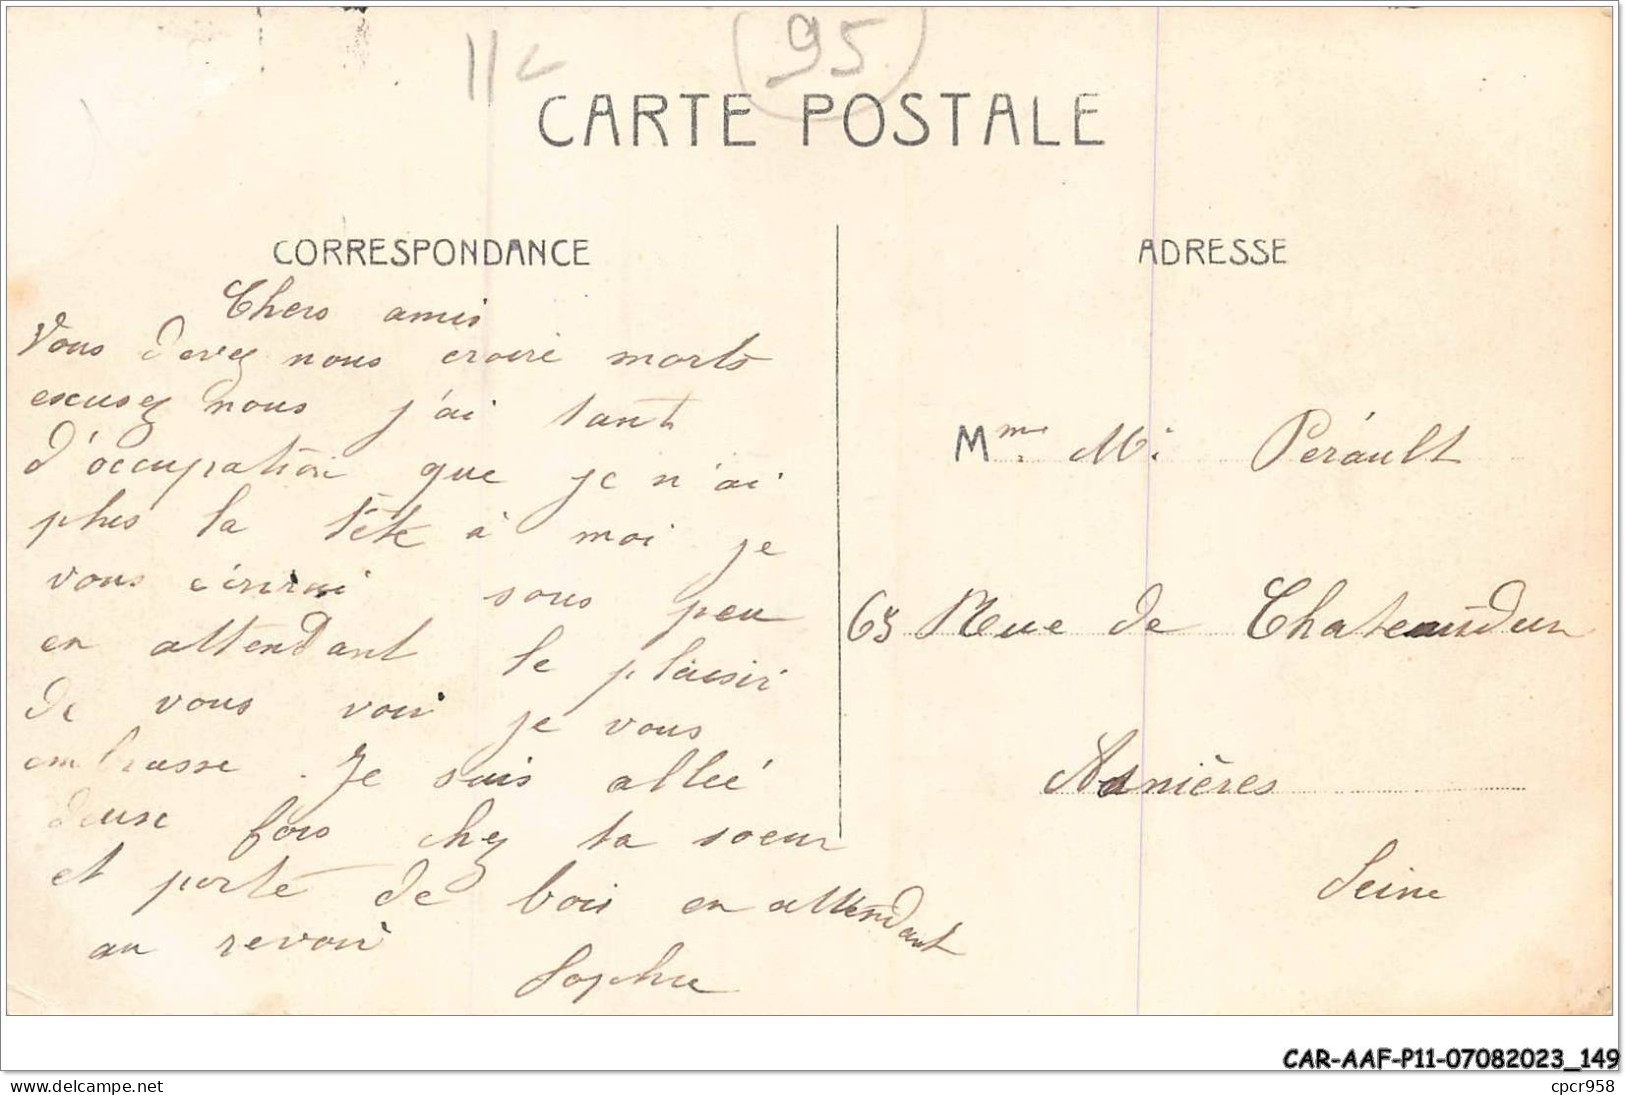 11
95
CARTE POSTALE
CORRESPONDANCE
Chers amis
Vous devez nous croire morts
escusez nous j'ai tant
d'occupation que je n'ai
plus la tête à moi je
vous écrirai sous peu
en attendant le plaisir
de vous voir je vous
embrasse. Je suis allée
deux fois chez ta soeur
et porte de bois en attendant
au revoir
Sophie
ADRESSE
Mme Mr Perault
63 Rue de Chateaudun
Asnières
Seine
CAR-AAF-P11-07082023_149
Je vends, j'achète
cpcr958